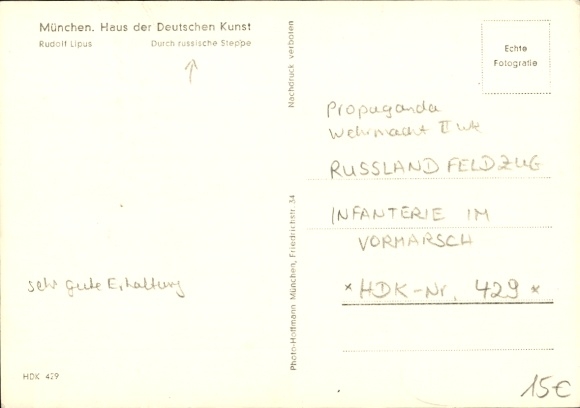 München. Haus der Deutschen Kunst
Rudolf Lipus Durch russische Steppe
sehr gute Erhaltung
HDK 429
Nachdruck verboten
Photo-Hoffmann München, Friedrichstr. 34
Echte
Fotografie
Propaganda
Wehrmacht II WK
RUSSLAND FELDZUG
INFANTERIE IM
VORMARSCH
* HDK-Nr. 429 *
15€